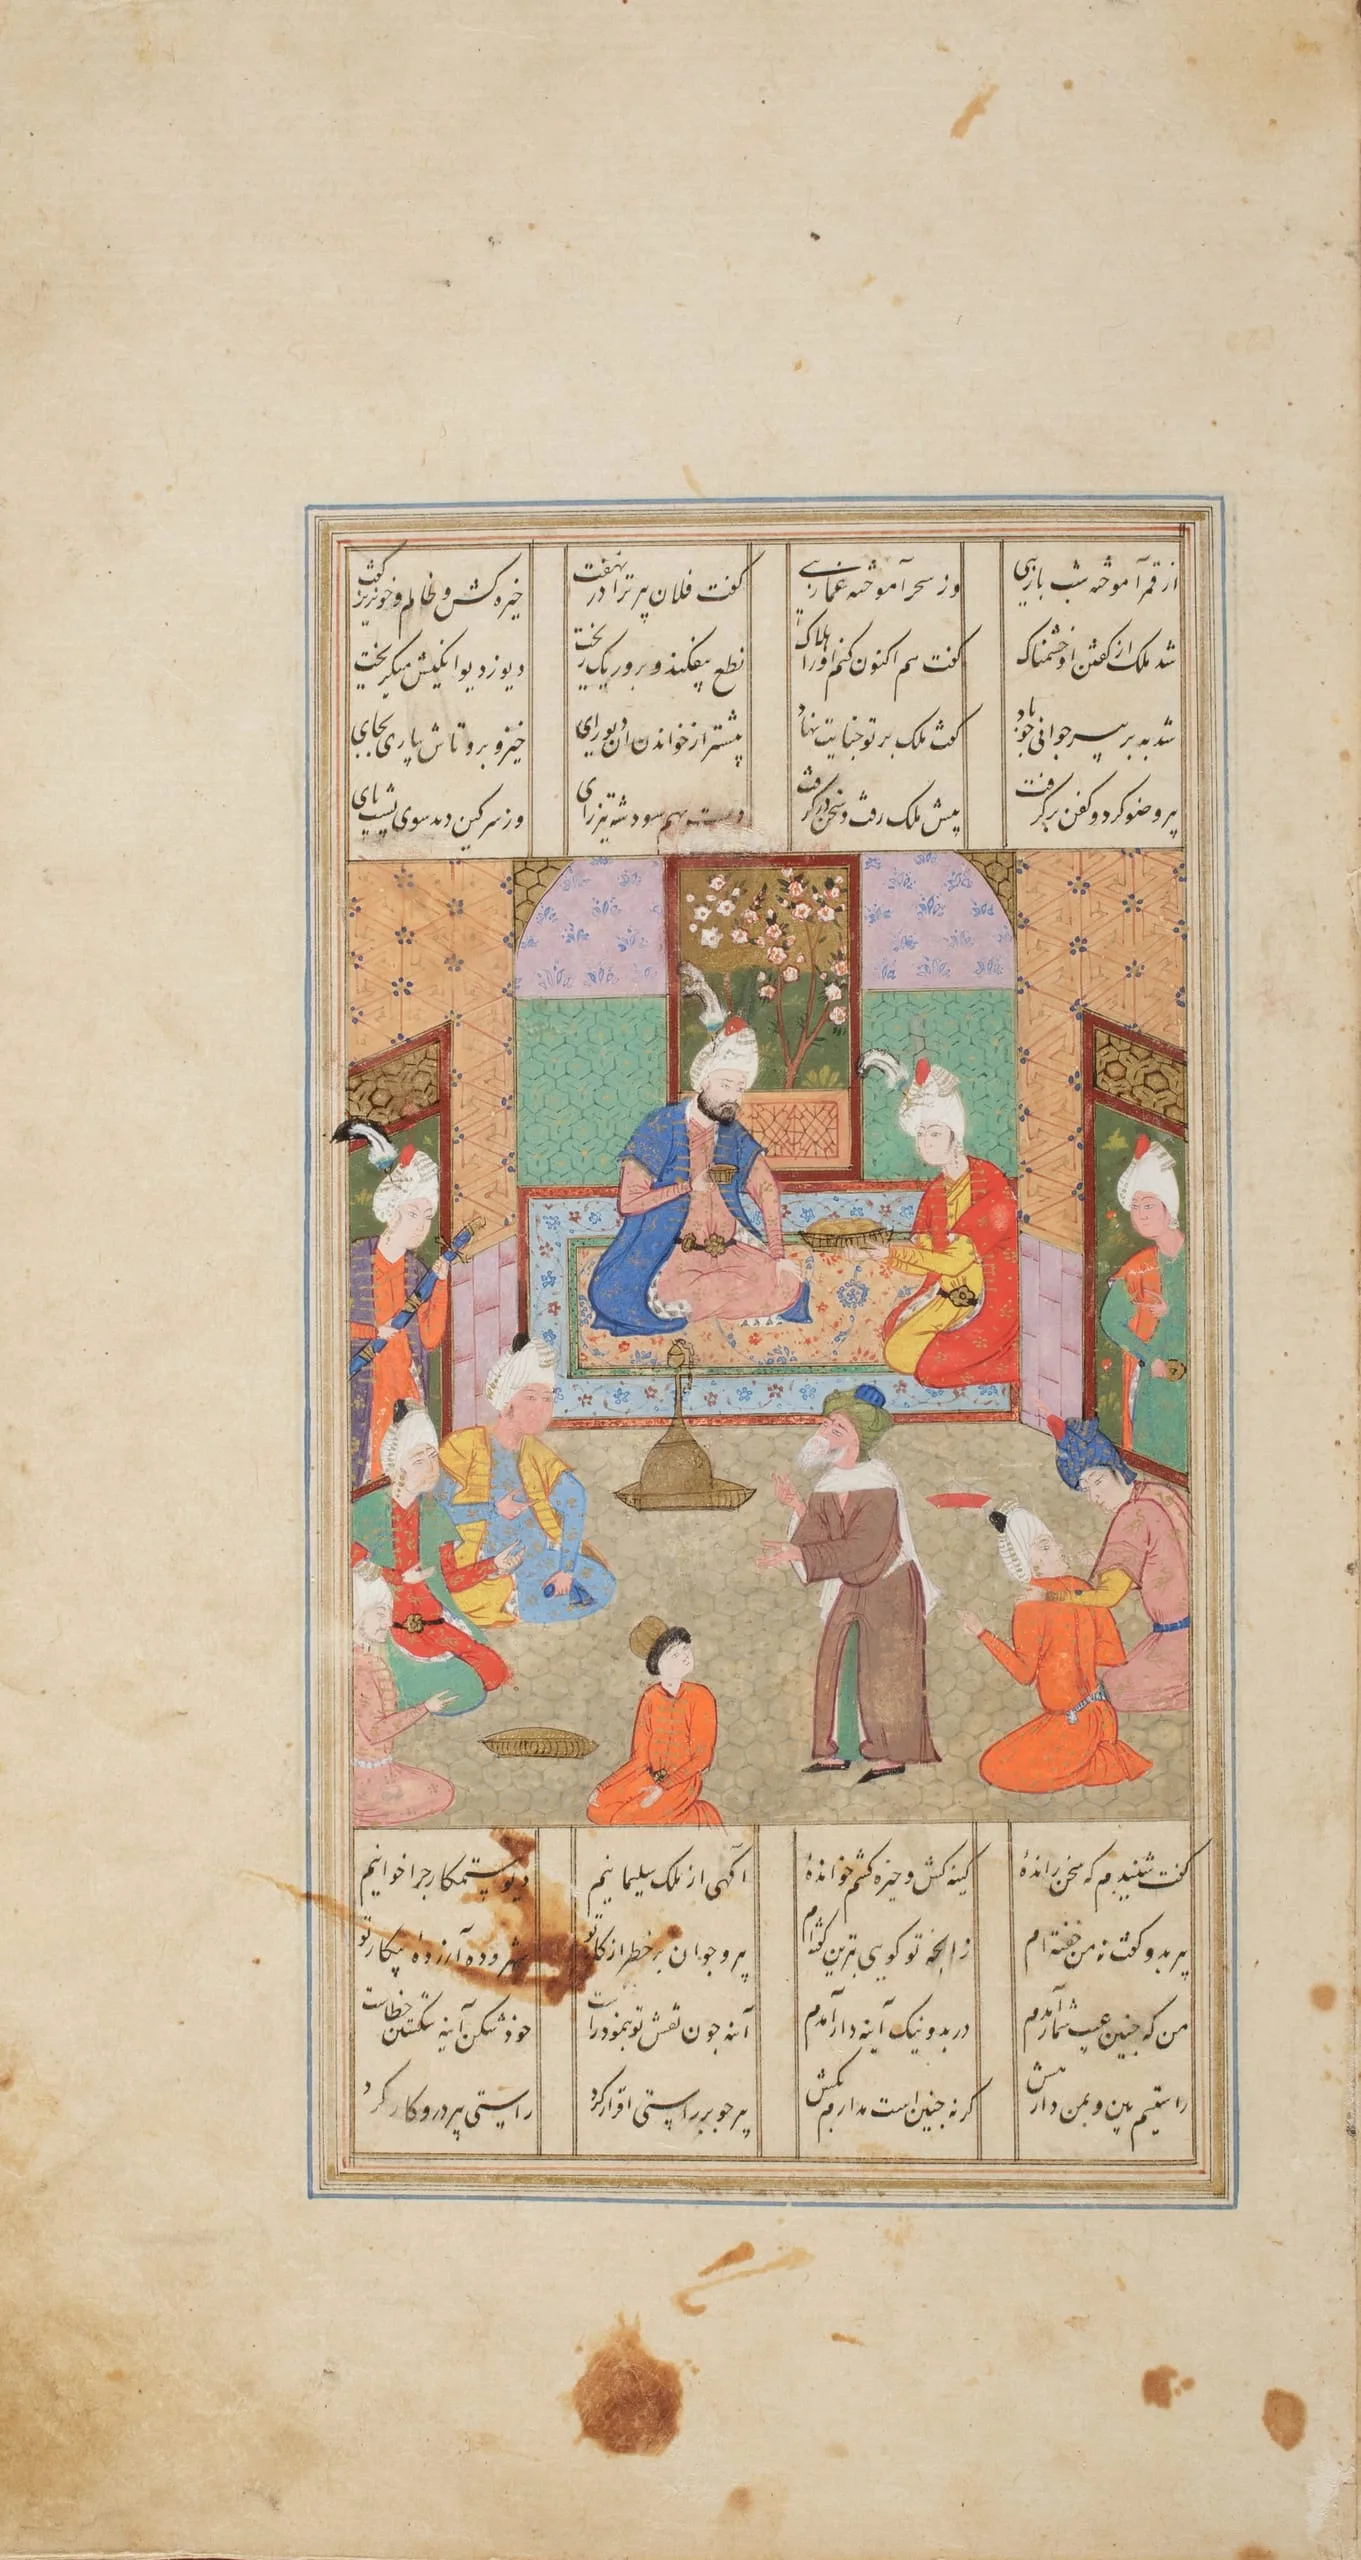 از قمر آموخته شب بازیی وز سحر آموخته غمازیی گفت فلان پیر ترا در نهفت خیره کش و ظالم و خونریز گفت
شد ملک از گفتن او خشمناک گفت هم اکنون کنم او را هلاک نطع بیفکند و برو ریک ریخت دیو ز دیوانگیش میگریخت
شد به بر پیر جوانی چو باد گفت ملک بر تو جنایت نهاد پیشتر از خواندن آن دیورای خیز و برو تاش بیاری بجای
پیر وضو کرد و کفن برگرفت پیش ملک رفت و سخن درگرفت دست بهم سود شه تیزرای وز سر کین دید سوی پشت پای
گفت شنیدم که سخن راندهٔ کینه کش و خیره کشم خواندهٔ آگهی از ملک سلیمانیم دیو ستمکار چرا خوانیم
پیر بدو گفت نه من خفته ام زانچه تو گویی بترین گفته ام پیر و جوان بر خطر از کار تو شهر و ده آزرده ز پیکار تو
من که چنین عیب شمار آمدم در بد و نیک آینه دار آمدم آینه چون نقش تو بنمود راست خود شکن آینه شکستن خطاست
راستیم بین و بمن دار هش گر نه چنین است بدارم بکش پیر چو بر راستی اقرار کرد راستی پیر درو کار کرد